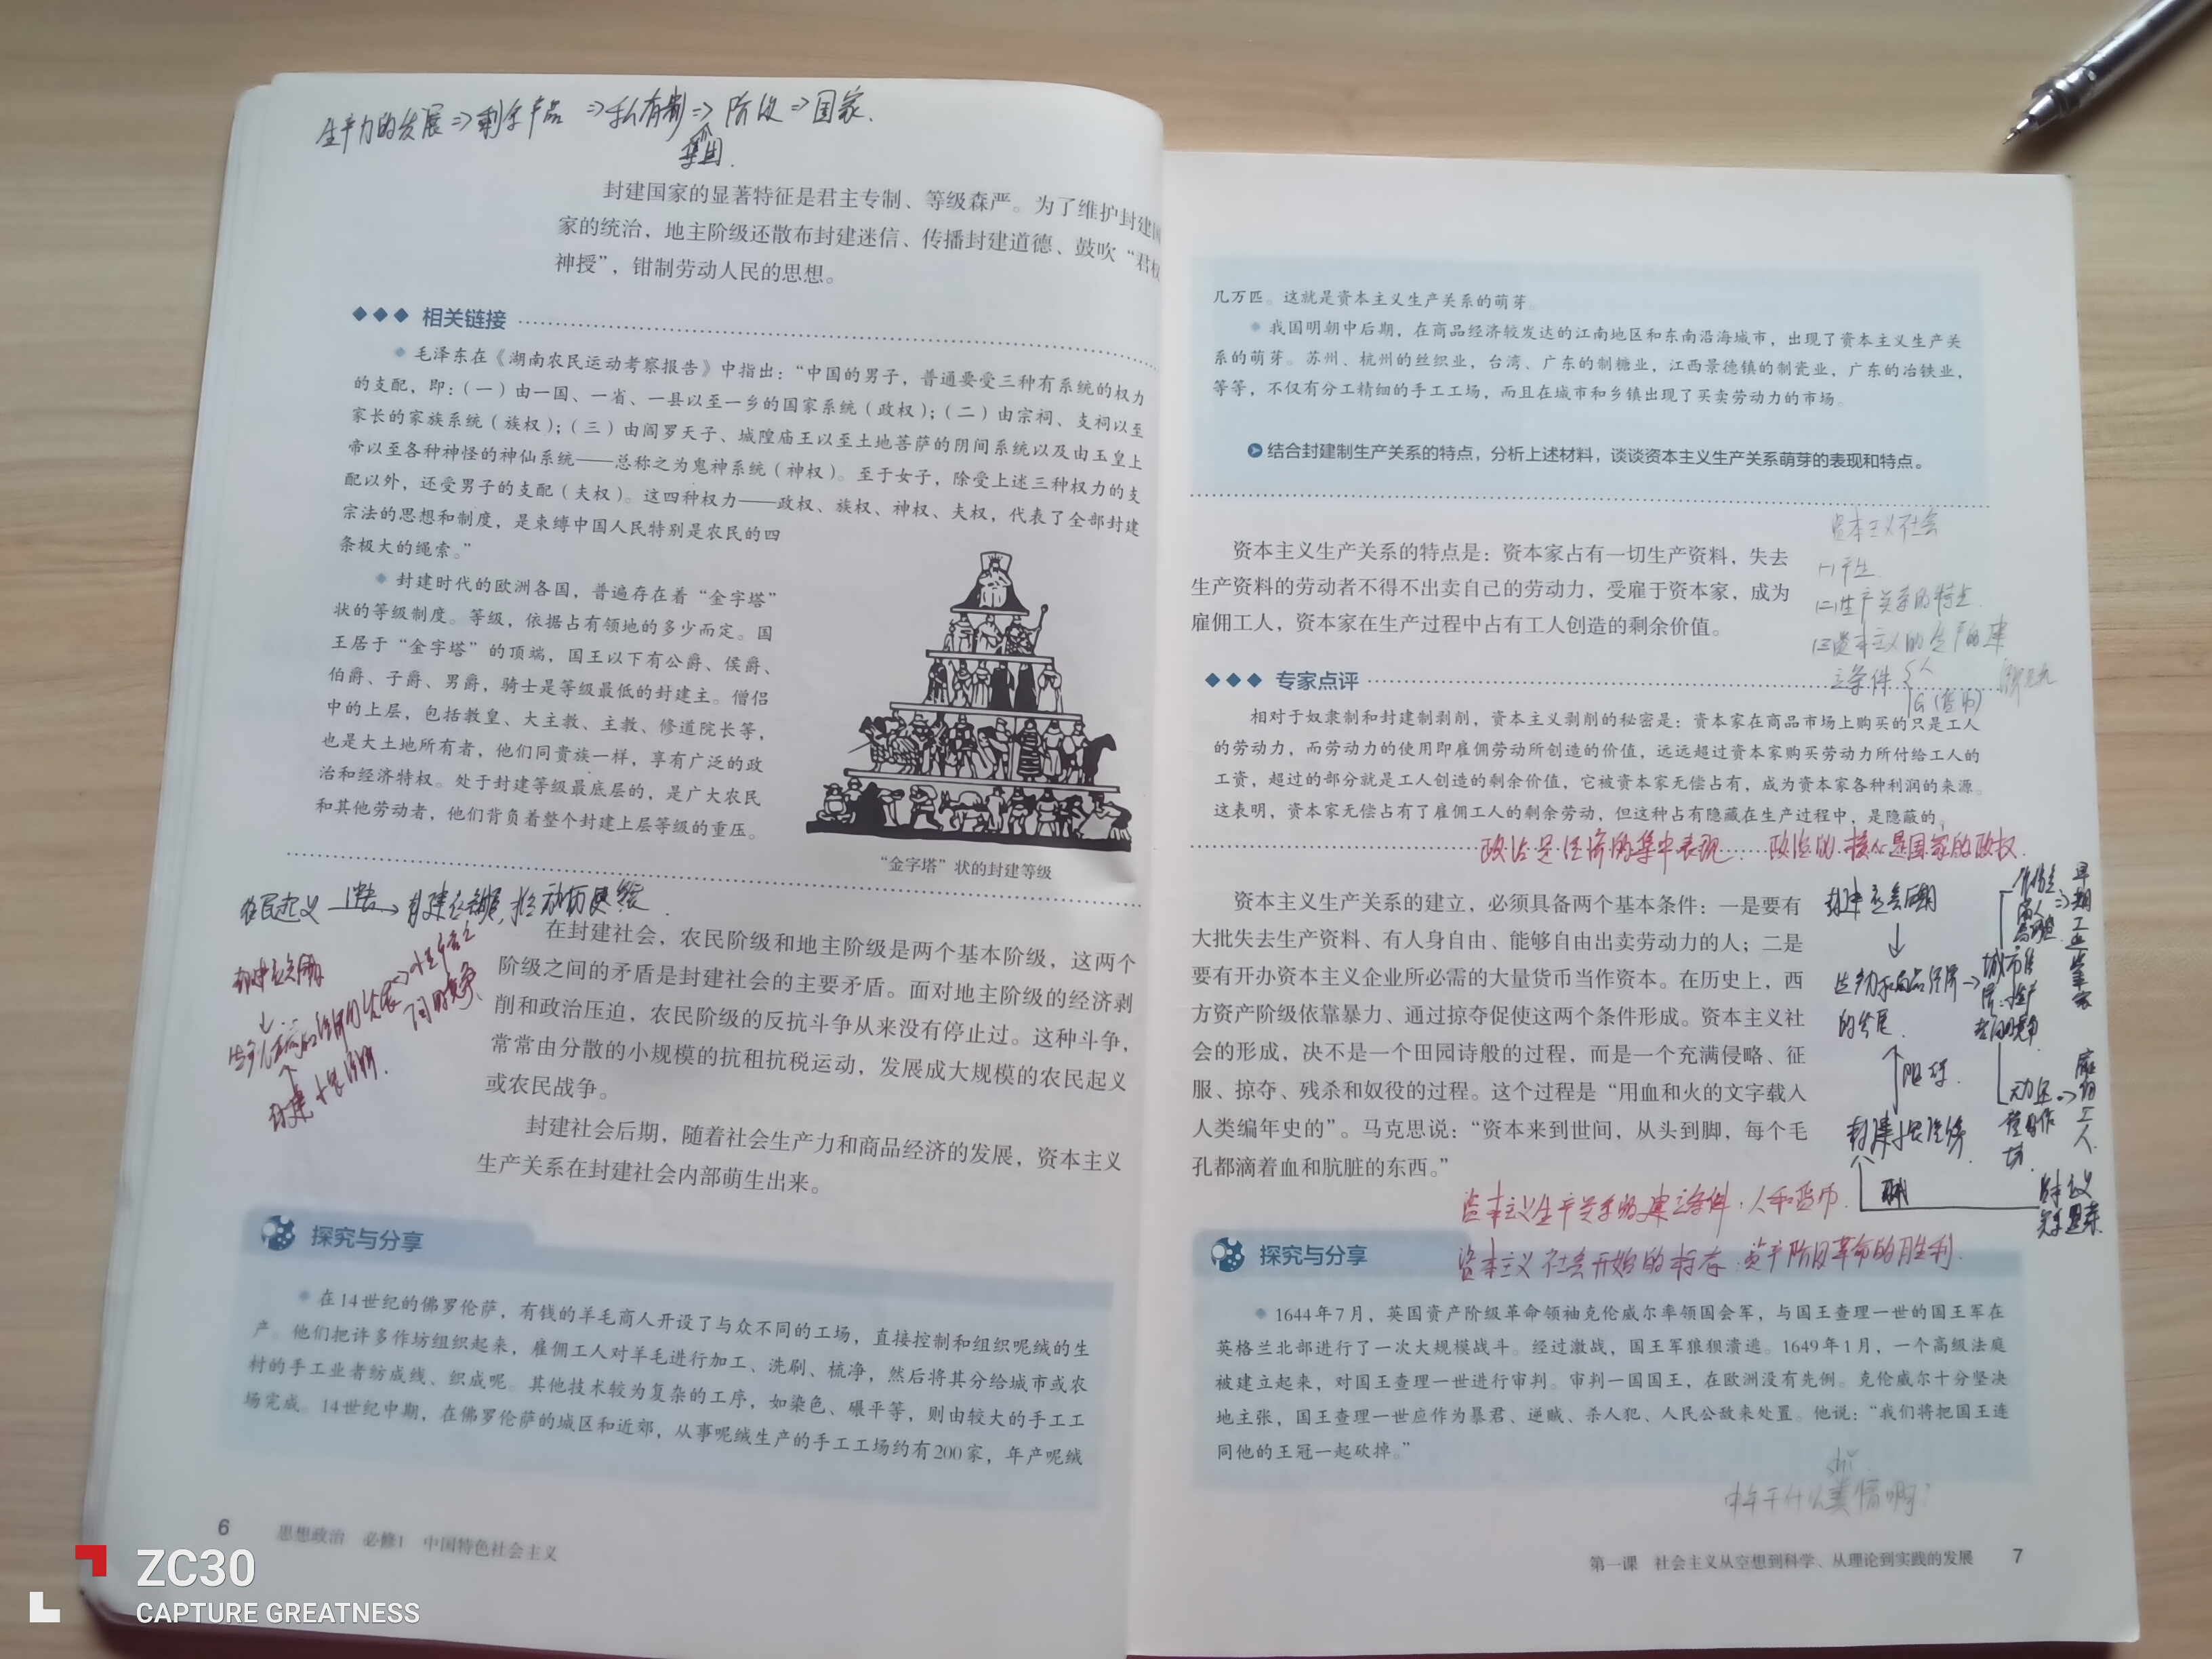 生产力的发展⇒剩余产品⇒私有制⇒阶级⇒国家.
集团.
封建国家的显著特征是君主专制、等级森严。为了维护封建国
家的统治，地主阶级还散布封建迷信、传播封建道德、鼓吹“君权
神授”，钳制劳动人民的思想。
相关链接
毛泽东在《湖南农民运动考察报告》中指出：“中国的男子，普通要受三种有系统的权力
的支配，即：（一）由一国、一省、一县以至一乡的国家系统（政权）；（二）由宗祠、支祠以至
家长的家族系统（族权）；（三）由阎罗天子、城隍庙王以至土地菩萨的阴间系统以及由玉皇上
帝以至各种神怪的神仙系统——总称之为鬼神系统（神权）。至于女子，除受上述三种权力的支
配以外，还受男子的支配（夫权）。这四种权力——政权、族权、神权、夫权，代表了全部封建
宗法的思想和制度，是束缚中国人民特别是农民的四
条极大的绳索。”
封建时代的欧洲各国，普遍存在着“金字塔”
状的等级制度。等级，依据占有领地的多少而定。国
王居于“金字塔”的顶端，国王以下有公爵、侯爵、
伯爵、子爵、男爵，骑士是等级最低的封建主。僧侣
中的上层，包括教皇、大主教、主教、修道院长等，
也是大土地所有者，他们同贵族一样，享有广泛的政
治和经济特权。处于封建等级最底层的，是广大农民
和其他劳动者，他们背负着整个封建上层等级的重压。
“金字塔”状的封建等级
农民起义
在封建社会，农民阶级和地主阶级是两个基本阶级，这两个
阶级之间的矛盾是封建社会的主要矛盾。面对地主阶级的经济剥
削和政治压迫，农民阶级的反抗斗争从来没有停止过。这种斗争，
常常由分散的小规模的抗租抗税运动，发展成大规模的农民起义
或农民战争。
封建社会后期，随着社会生产力和商品经济的发展，资本主义
生产关系在封建社会内部萌生出来。
探究与分享
在14世纪的佛罗伦萨，有钱的羊毛商人开设了与众不同的工场，直接控制和组织呢绒的生
产。他们把许多作坊组织起来，雇佣工人对羊毛进行加工、洗刷、梳净，然后将其分给城市或农
村的手工业者纺成线、织成呢。其他技术较为复杂的工序，如染色、碾平等，则由较大的手工工
场完成。14世纪中期，在佛罗伦萨的城区和近郊，从事呢绒生产的手工工场约有200家，年产呢绒
6 思想政治 必修1 中国特色社会主义
几万匹。这就是资本主义生产关系的萌芽。
我国明朝中后期，在商品经济较发达的江南地区和东南沿海城市，出现了资本主义生产关
系的萌芽。苏州、杭州的丝织业，台湾、广东的制糖业，江西景德镇的制瓷业，广东的冶铁业，
等等，不仅有分工精细的手工工场，而且在城市和乡镇出现了买卖劳动力的市场。
结合封建制生产关系的特点，分析上述材料，谈谈资本主义生产关系萌芽的表现和特点。
资本主义社会
(一)产生
(二)生产关系的特点
(三)资本主义的生产的建
立条件 人
资本主义生产关系的特点是：资本家占有一切生产资料，失去
生产资料的劳动者不得不出卖自己的劳动力，受雇于资本家，成为
雇佣工人，资本家在生产过程中占有工人创造的剩余价值。
专家点评
相对于奴隶制和封建制剥削，资本主义剥削的秘密是：资本家在商品市场上购买的只是工人
的劳动力，而劳动力的使用即雇佣劳动所创造的价值，远远超过资本家购买劳动力所付给工人的
工资，超过的部分就是工人创造的剩余价值，它被资本家无偿占有，成为资本家各种利润的来源。
这表明，资本家无偿占有了雇佣工人的剩余劳动，但这种占有隐藏在生产过程中，是隐蔽的。
政治是经济的集中表现. 政治的核心是国家的政权.
资本主义生产关系的建立，必须具备两个基本条件：一是要有
大批失去生产资料、有人身自由、能够自由出卖劳动力的人；二是
要有开办资本主义企业所必需的大量货币当作资本。在历史上，西
方资产阶级依靠暴力、通过掠夺促使这两个条件形成。资本主义社
会的形成，决不是一个田园诗般的过程，而是一个充满侵略、征
服、掠夺、残杀和奴役的过程。这个过程是“用血和火的文字载入
人类编年史的”。马克思说：“资本来到世间，从头到脚，每个毛
孔都滴着血和肮脏的东西。”
封建社会后期
的发展
阻碍
雇佣工人
资本主义生产关系的建立条件：人和货币.
资本主义社会开始的标志：资产阶级革命的胜利.
探究与分享
1644年7月，英国资产阶级革命领袖克伦威尔率领国会军，与国王查理一世的国王军在
英格兰北部进行了一次大规模战斗。经过激战，国王军狼狈溃逃。1649年1月，一个高级法庭
被建立起来，对国王查理一世进行审判。审判一国国王，在欧洲没有先例。克伦威尔十分坚决
地主张，国王查理一世应作为暴君、逆贼、杀人犯、人民公敌来处置。他说：“我们将把国王连
同他的王冠一起砍掉。”
第一课 社会主义从空想到科学、从理论到实践的发展 7
ZC30
CAPTURE GREATNESS